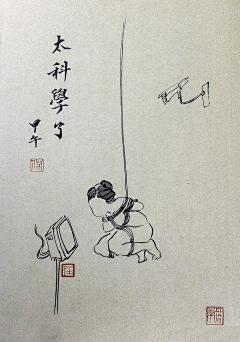 太科學了
甲午